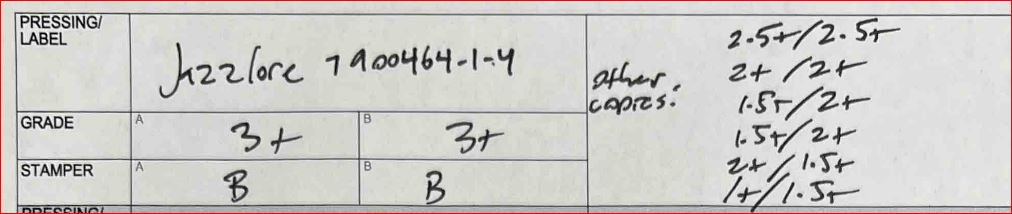 PRESSING/
LABEL
Jazzlore 7 900464-1-4
GRADE
A 3+
B 3+
STAMPER
A B
B B
other
copies:
2.5+/2.5+
2+/2+
1.5+/2+
1.5+/2+
2+/1.5+
1+/1.5+
PRESSING/